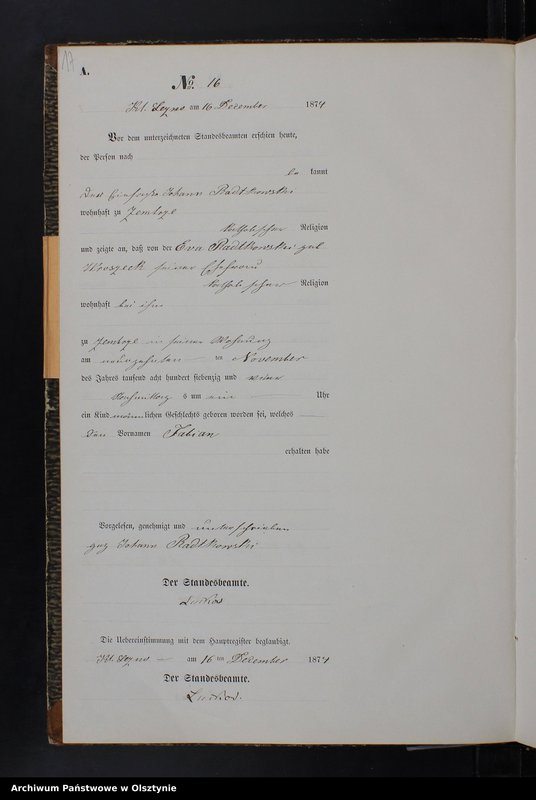 17
A.
No. 16
Kl. Leyno am 16 December 1874
Vor dem unterzeichneten Standesbeamten erschien heute,
der Person nach
be kannt
der Johann Radtkowski
wohnhaft zu
katholischer Religion
und zeigte an, daß von der Eva Radtkowski geb
seiner Ehefrau
katholischer Religion
wohnhaft bei ihm
zu in seiner Wohnung
am neunzehnten ten November
des Jahres tausend acht hundert siebenzig und vier
Nachmittags um ein Uhr
ein Kind männlichen Geschlechts geboren worden sei, welches
den Vornamen Fabian
erhalten habe
Vorgelesen, genehmigt und unterschrieben
gez Johann Radtkowski
Der Standesbeamte.
Die Uebereinstimmung mit dem Hauptregister beglaubigt.
Kl. Leyno am 16 ten December 1874
Der Standesbeamte.
Archiwum Państwowe w Olsztynie